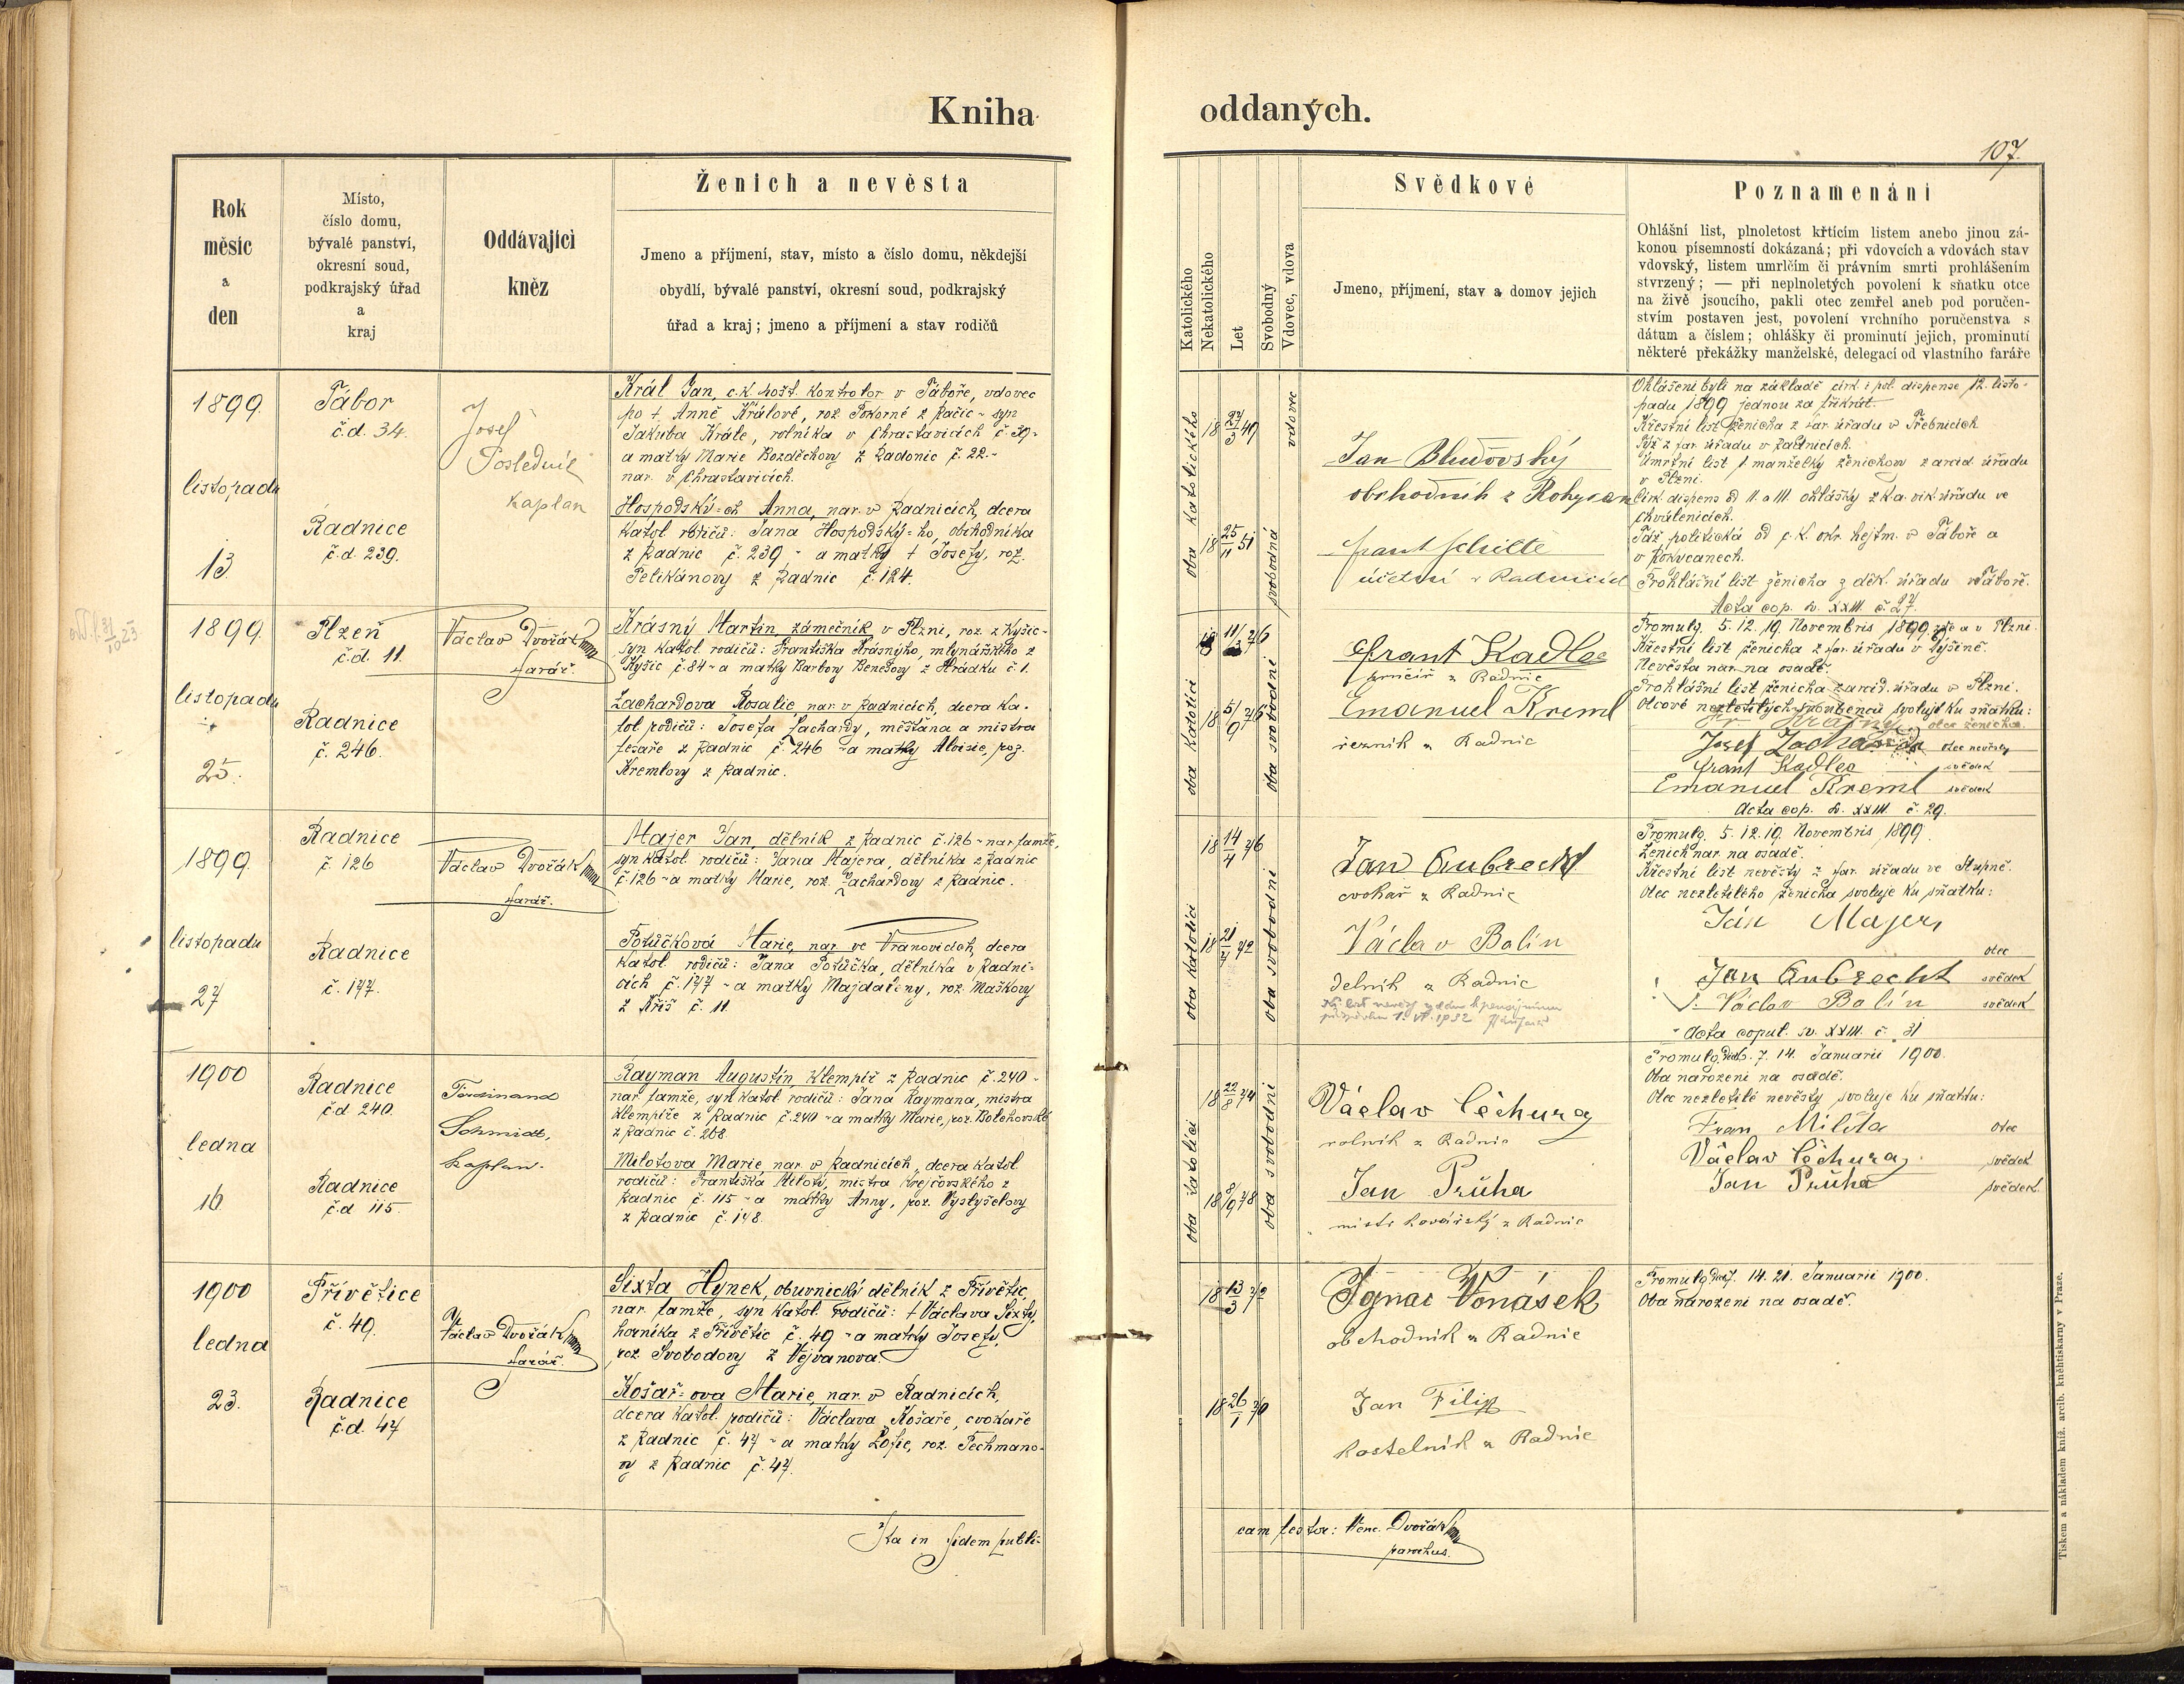 Kniha
oddaných.
107.
Rok
měsíc
a
den
Místo,
číslo domu,
bývalé panství,
okresní soud,
podkrajský úřad
a
kraj
Oddávající
kněz
Ženich a nevěsta
Jmeno a příjmení, stav, místo a číslo domu, někdejší
obydlí, bývalé panství, okresní soud, podkrajský
úřad a kraj; jmeno a příjmení a stav rodičů
Katolického
Nekatolického
Let
Svobodný
Vdovec, vdova
Svědkové
Jmeno, příjmení, stav a domov jejich
Poznamenání
Ohlášní list, plnoletost křticím listem anebo jinou zá-
konou písemností dokázaná; při vdovcích a vdovách stav
vdovský, listem umrlčím či právním smrti prohlášením
stvrzený; — při neplnoletých povolení k sňatku otce
na živě jsoucího, pakli otec zemřel aneb pod poručen-
stvím postaven jest, povolení vrchního poručenstva s
dátum a číslem; ohlášky či prominutí jejich, prominutí
některé překážky manželské, delegací od vlastního faráře
1899.
listopadu
13.
Tábor
č.d. 34.
Radnice
č.d. 239.
Josef
Posledník
kaplan
Král Jan, c.k. pošt. kontrolor v Táboře, vdovec
po † Anně Králové, roz. Pokorné z Račic - syn
Jakuba Krále, rolníka v Chrastavicích č. 39 -
a matky Marie Bozděchovy z Radonic č. 22. -
nar. v Chrastavicích.
Hospodský-ch Anna, nar. v Radnicích, dcera
katol. rodičů: Jana Hospodský-ho, obchodníka
z Radnic č. 239 - a matky † Josefy, roz.
Pelikánovy z Radnic č. 124.
oba katolického
18 27/3 49
18 25/11 51
vdovec
svobodná
Jan Bludovský
obchodník z Rokycan
Frant Schitte
účetní v Radnicích
Ohlášeni byli na základě cirk. i pol. dispense 12. listo-
padu 1899 jednou za třikrát.
Křestní list ženicha z far. úřadu v Třebnicích
Týž z far. úřadu v Radnicích.
Úmrtní list † manželky ženichovy z arcid. úřadu
v Plzni.
Cirk. dispens od II. a III. ohlášky z k.a. vik. úřadu ve
Chválenicích.
Táž politická od c.k. okr. hejtm. v Táboře a
v Rokycanech.
Prohlášní list ženicha z děk. úřadu v Táboře.
Acta cop. sv. XXIII. č. 27.
1899.
listopadu
25.
Plzeň
č.d. 11.
Radnice
č. 246.
Václav Dvořák
farář.
Krásný Martin, zámečník v Plzni, roz. z Kyšic -
syn katol. rodičů: Františka Krásnýho, mlynářského z
Kyšic č. 84 - a matky Barbory Benešovy z Hrádku č. 1.
Zachardova Rosalie, nar. v Radnicích, dcera ka-
tol. rodičů: Josefa Zachardy, měšťana a mistra
tesaře z Radnic č. 246 - a matky Aloisie, roz.
Kremlovy z Radnic.
oba katolíci
18 5/9 76
oba svobodni
Frant Kadlec
z Radnic
Emanuel Kreml
řezník z Radnic
Promulg. 5. 12. 19. Novembris 1899 zde a v Plzni.
Křestní list ženicha z far. úřadu v Dýšině.
Nevěsta nar. na osadě.
Prohlášní list ženicha z arcid. úřadu v Plzni.
Otcové nezletilých snoubenců svolují ku sňatku:
Fr. Krásný otec ženicha.
Josef Zacharda otec nevěsty
Frant Kadlec svědek
Emanuel Kreml svědek
Acta cop. sv. XXIII. č. 29.
1899.
listopadu
27
Radnice
č. 126
Radnice
č. 177.
Václav Dvořák
farář.
Majer Jan, dělník z Radnic č. 126 - nar. tamže,
syn katol. rodičů: Jana Majera, dělníka z Radnic
č. 126 - a matky Marie, roz. Zachardovy z Radnic.
Potůčková Marie, nar. ve Vranovicích, dcera
katol. rodičů: Jana Potůčka, dělníka v Radni-
cích č. 177 - a matky Majdaleny, roz. Maškovy
z Kříš č. 11.
oba katolíci
18 14/4 76
18 21/7 72
oba svobodni
Jan Aubrecht
cvokař z Radnic
Václav Balín
dělník z Radnic
Promulg. 5. 12. 19. Novembris, 1899.
Ženich nar. na osadě.
Křestní list nevěsty z far. úřadu ve Stupně.
Otec nezletilého ženicha svoluje ku sňatku:
Ján Majer,
otec
Jan Aubrecht svědek
Václav Balín svědek
Acta copul. sv. XXIII. č. 31
1900
ledna
16
Radnice
č.d. 240.
Radnice
č.d. 115.
Ferdinand
Schmidt,
kaplan.
Rayman Augustin, klempíř z Radnic č. 240 -
nar. tamže, syn katol. rodičů: Jana Raymana, mistra
klempíře z Radnic č. 240 - a matky Marie, roz. Bolehovské
z Radnic č. 268.
Milotova Marie, nar. v Radnicích, dcera katol.
rodičů: Františka Miloty, mistra krejčovského z
Radnic č. 115 - a matky Anny, roz. Vyslyšelovy
z Radnic č. 148.
oba katolíci
18 22/8 74
18 8/9 78
oba svobodni
Václav Čechura
rolník z Radnic
Jan Průha
mistr kovářský z Radnic
Promulg. 6. 7. 14. Januarii 1900.
Oba narozeni na osadě.
Otec nezletilé nevěsty svoluje ku sňatku:
Fran Milota otec
Václav Čechura svědek
Jan Průha svědek
1900
ledna
23.
Přívětice
č. 49.
Radnice
č.d. 47
Václav Dvořák
farář.
Sixta Hynek, obuvnický dělník z Přívětic,
nar. tamže, syn katol. rodičů: † Václava Sixty,
horníka z Přívětic č. 49 - a matky Josefy,
roz. Svobodovy z Vejvanova.
Košař-ova Marie, nar. v Radnicích,
dcera katol. rodičů: Václava Košaře, cvokaře
z Radnic č. 47 - a matky Žofie, roz. Techmano-
vy z Radnic č. 47.
18 13/3 72
18 26/1 70
Ignac Vonásek
obchodník z Radnic
Jan Filip
kostelník z Radnic
Promulg. 7. 14. 21. Januarii 1900.
Oba narozeni na osadě.
Ita in fidem publi-
cam testor: Venc. Dvořák
parochus.
Tiskem a nákladem kníž. arcib. knihtiskárny v Praze.